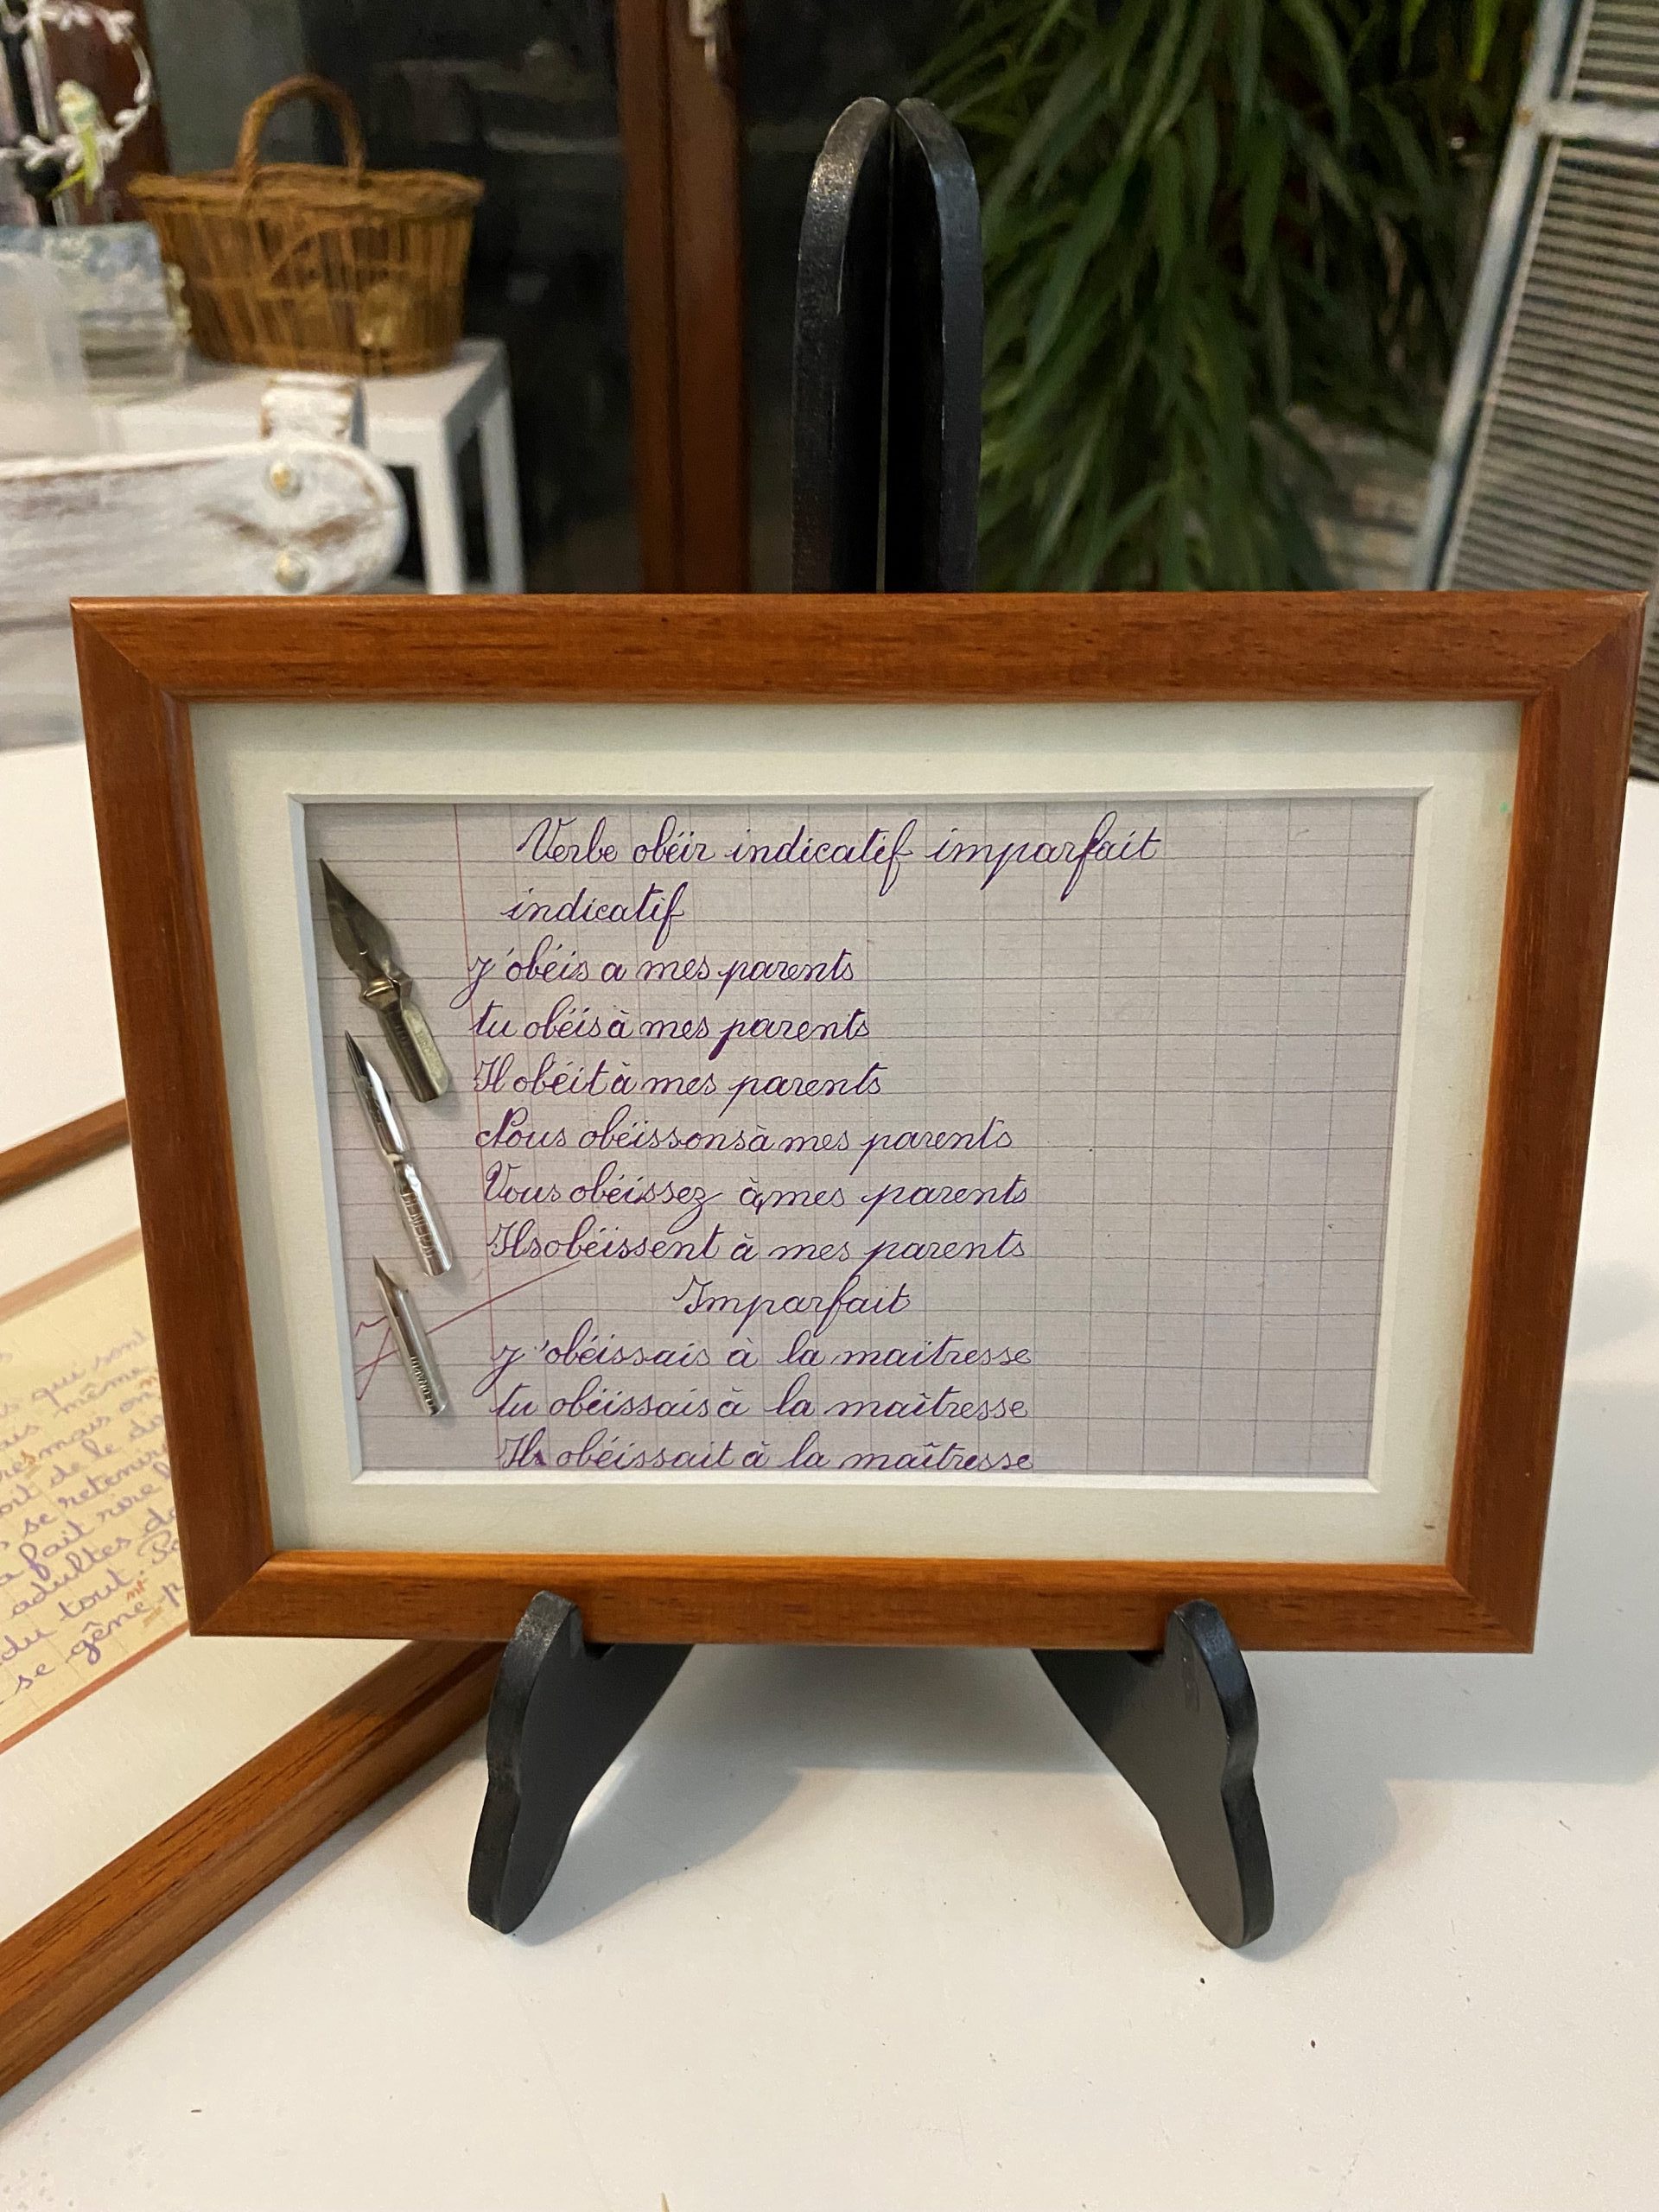 Verbe obéir indicatif imparfait
indicatif
j'obéis a mes parents
tu obéis à mes parents
Il obéit à mes parents
Nous obéissons à mes parents
Vous obéissez à mes parents
Ils obéissent à mes parents
Imparfait
j'obéissais à la maitresse
tu obéissais à la maîtresse
Ils obéissait à la maîtresse
qui sont
même
mais on
de le
se retenir
fait rire
adultes
du tout.
se gêne